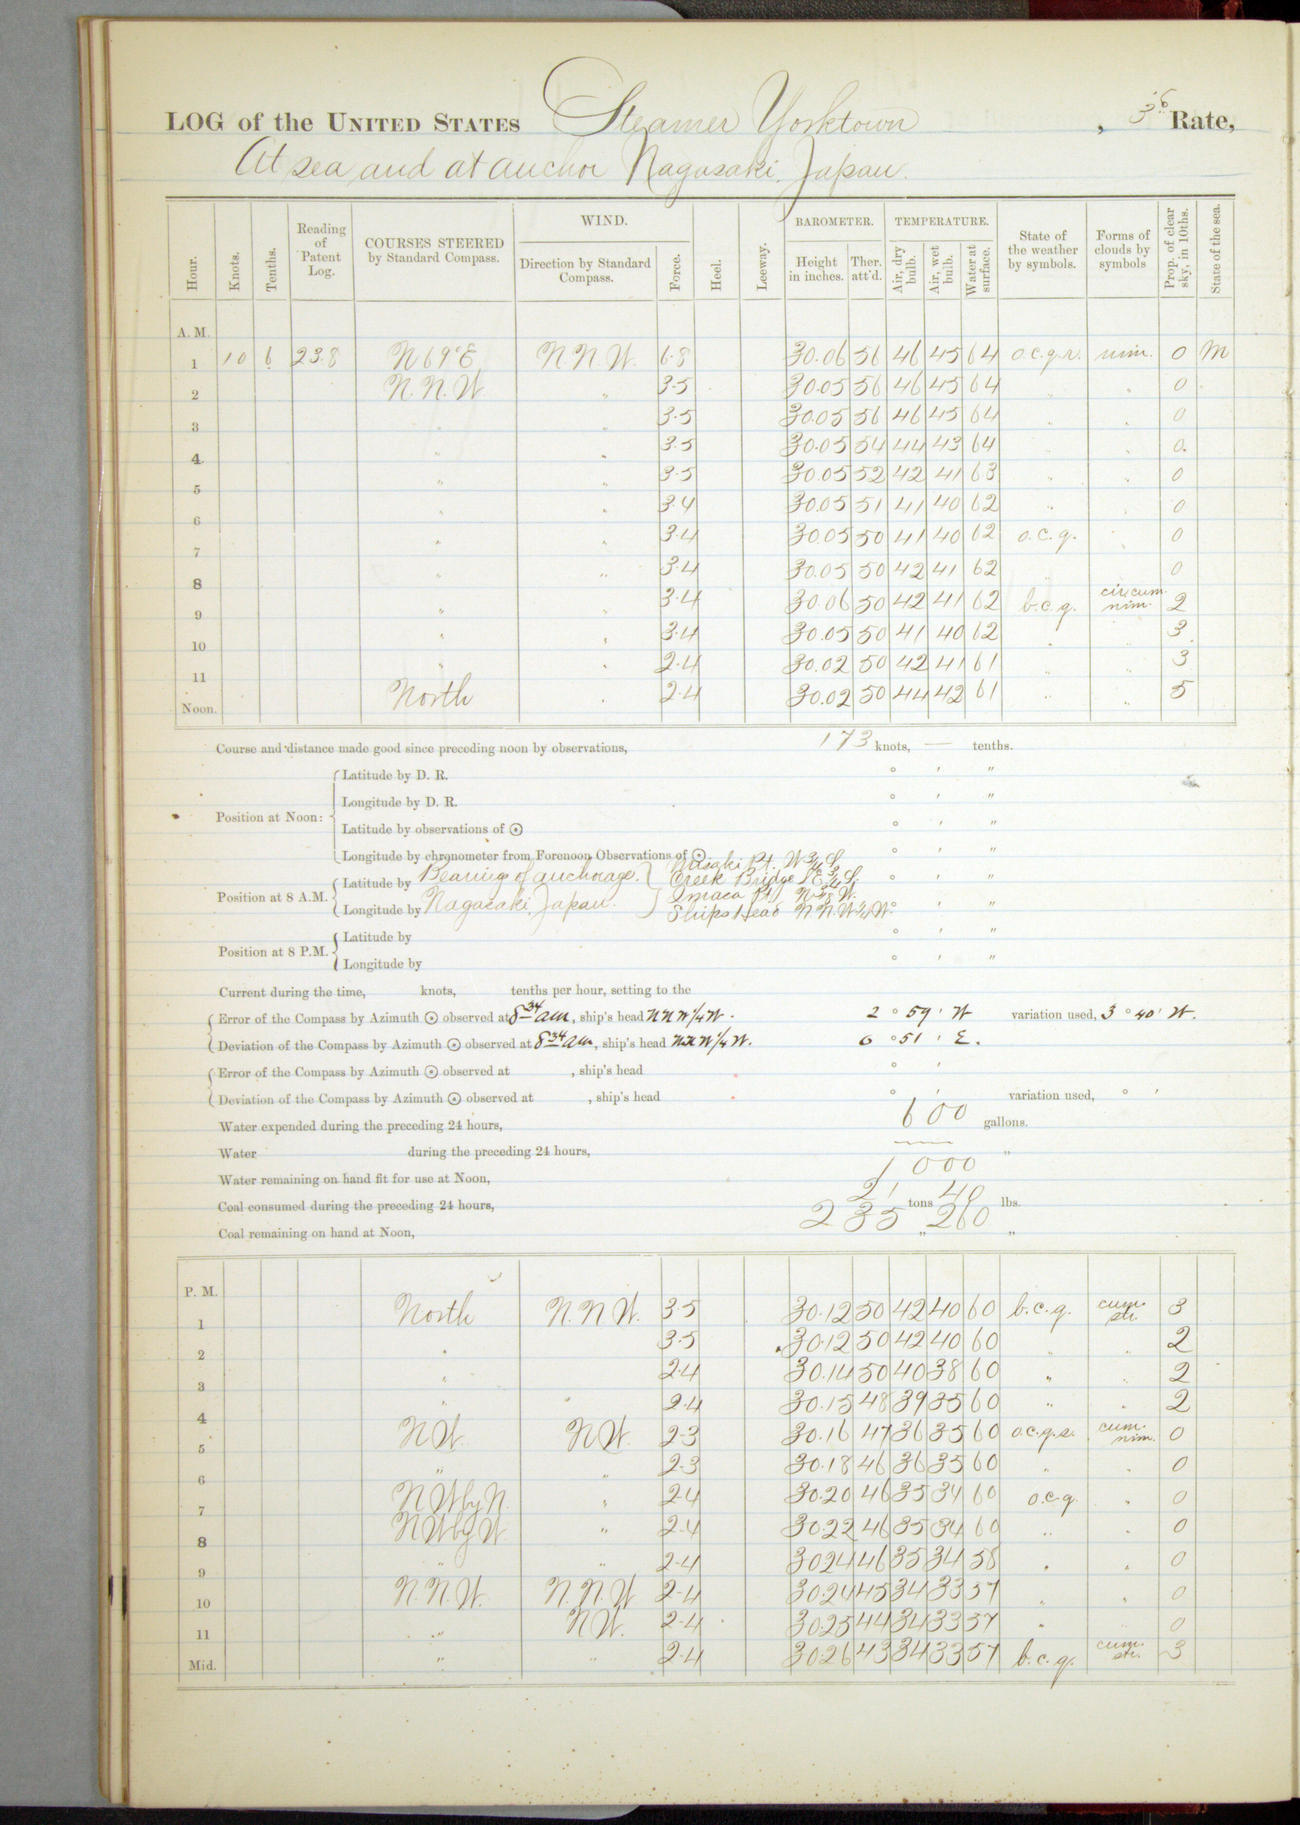 LOG of the UNITED STATES Steamer Yorktown, 3d Rate,
At sea and at anchor Nagasaki, Japan.
Hour. Knots. Tenths. Reading of Patent Log. COURSES STEERED by Standard Compass. WIND. Direction by Standard Compass. Force. Heel. Leeway. BAROMETER. Height in inches. Ther. att'd. TEMPERATURE. Air, dry bulb. Air, wet bulb. Water at surface. State of the weather by symbols. Forms of clouds by symbols Prop. of clear sky, in 10ths. State of the sea.
A. M.
1 10 6 23.8 N 69° E N.N.W. 6-8 30.06 56 46 45 64 o.c.q.r. nim. 0 M
2 N.N.W. " 3-5 30.05 56 46 45 64 " " 0
3 " " 3-5 30.05 56 46 45 64 " " 0
4 " " 3-5 30.05 54 44 43 64 " " 0
5 " " 3-5 30.05 52 42 41 63 " " 0
6 " " 3-4 30.05 51 41 40 62 " " 0
7 " " 3-4 30.05 50 41 40 62 o.c.q. " 0
8 " " 3-4 30.05 50 42 41 62 " 0
9 " " 3-4 30.06 50 42 41 62 b.c.q. cir. cum. nim. 2
10 " " 3-4 30.05 50 41 40 62 " 3
11 " " 2-4 30.02 50 42 41 61 " " 3
Noon. North " 2-4 30.02 50 44 42 61 " " 5
Course and distance made good since preceding noon by observations, 173 knots, — tenths.
Position at Noon: Latitude by D. R. ° ′ ″
Longitude by D. R. ° ′ ″
Latitude by observations of ☉ ° ′ ″
Longitude by chronometer from Forenoon Observations of ☉ ° ′ ″
Position at 8 A.M. Latitude by Bearing of anchorage. ° ′ ″
Longitude by Nagasaki, Japan. ° ′ ″
Pt. W 3/4 S.
Creek Bridge
Pt.
Ships Head N.N.W 1/4 W.
Position at 8 P.M. Latitude by ° ′ ″
Longitude by ° ′ ″
Current during the time, knots, tenths per hour, setting to the
Error of the Compass by Azimuth ☉ observed at 8 34 am, ship's head NNW 1/4 W. 2 ° 59 ′ W variation used, 3 ° 40 ′ W.
Deviation of the Compass by Azimuth ☉ observed at 8 34 am, ship's head NNW 1/4 W. 0 ° 51 ′ E.
Error of the Compass by Azimuth ☉ observed at , ship's head ° ′
Deviation of the Compass by Azimuth ☉ observed at , ship's head ° ′ variation used, ° ′
Water expended during the preceding 24 hours, 600 gallons.
Water during the preceding 24 hours, — "
Water remaining on hand fit for use at Noon, 1000
Coal consumed during the preceding 24 hours, 21 tons 40 lbs.
Coal remaining on hand at Noon, 235 " 260 "
P. M.
1 North N.N.W. 3-5 30.12 50 42 40 60 b.c.q. cum. str. 3
2 " 3-5 30.12 50 42 40 60 " " 2
3 " 2-4 30.14 50 40 38 60 " " 2
4 " " 2-4 30.15 48 39 35 60 " " 2
5 NW. NW. 2-3 30.16 47 36 35 60 o.c.q.s. cum. nim. 0
6 " " 2-3 30.18 46 36 35 60 " " 0
7 NW by N. " 2-4 30.20 46 35 34 60 o.c.q. " 0
8 NW by W. " 2-4 30.22 46 35 34 60 " " 0
9 " " 2-4 30.24 46 35 34 58 " " 0
10 N.N.W. N.N.W 2-4 30.24 45 34 33 57 " " 0
11 " NW. 2-4 30.25 44 34 33 57 " " 0
Mid. " " 2-4 30.26 43 34 33 57 b.c.q. cum. str. 3